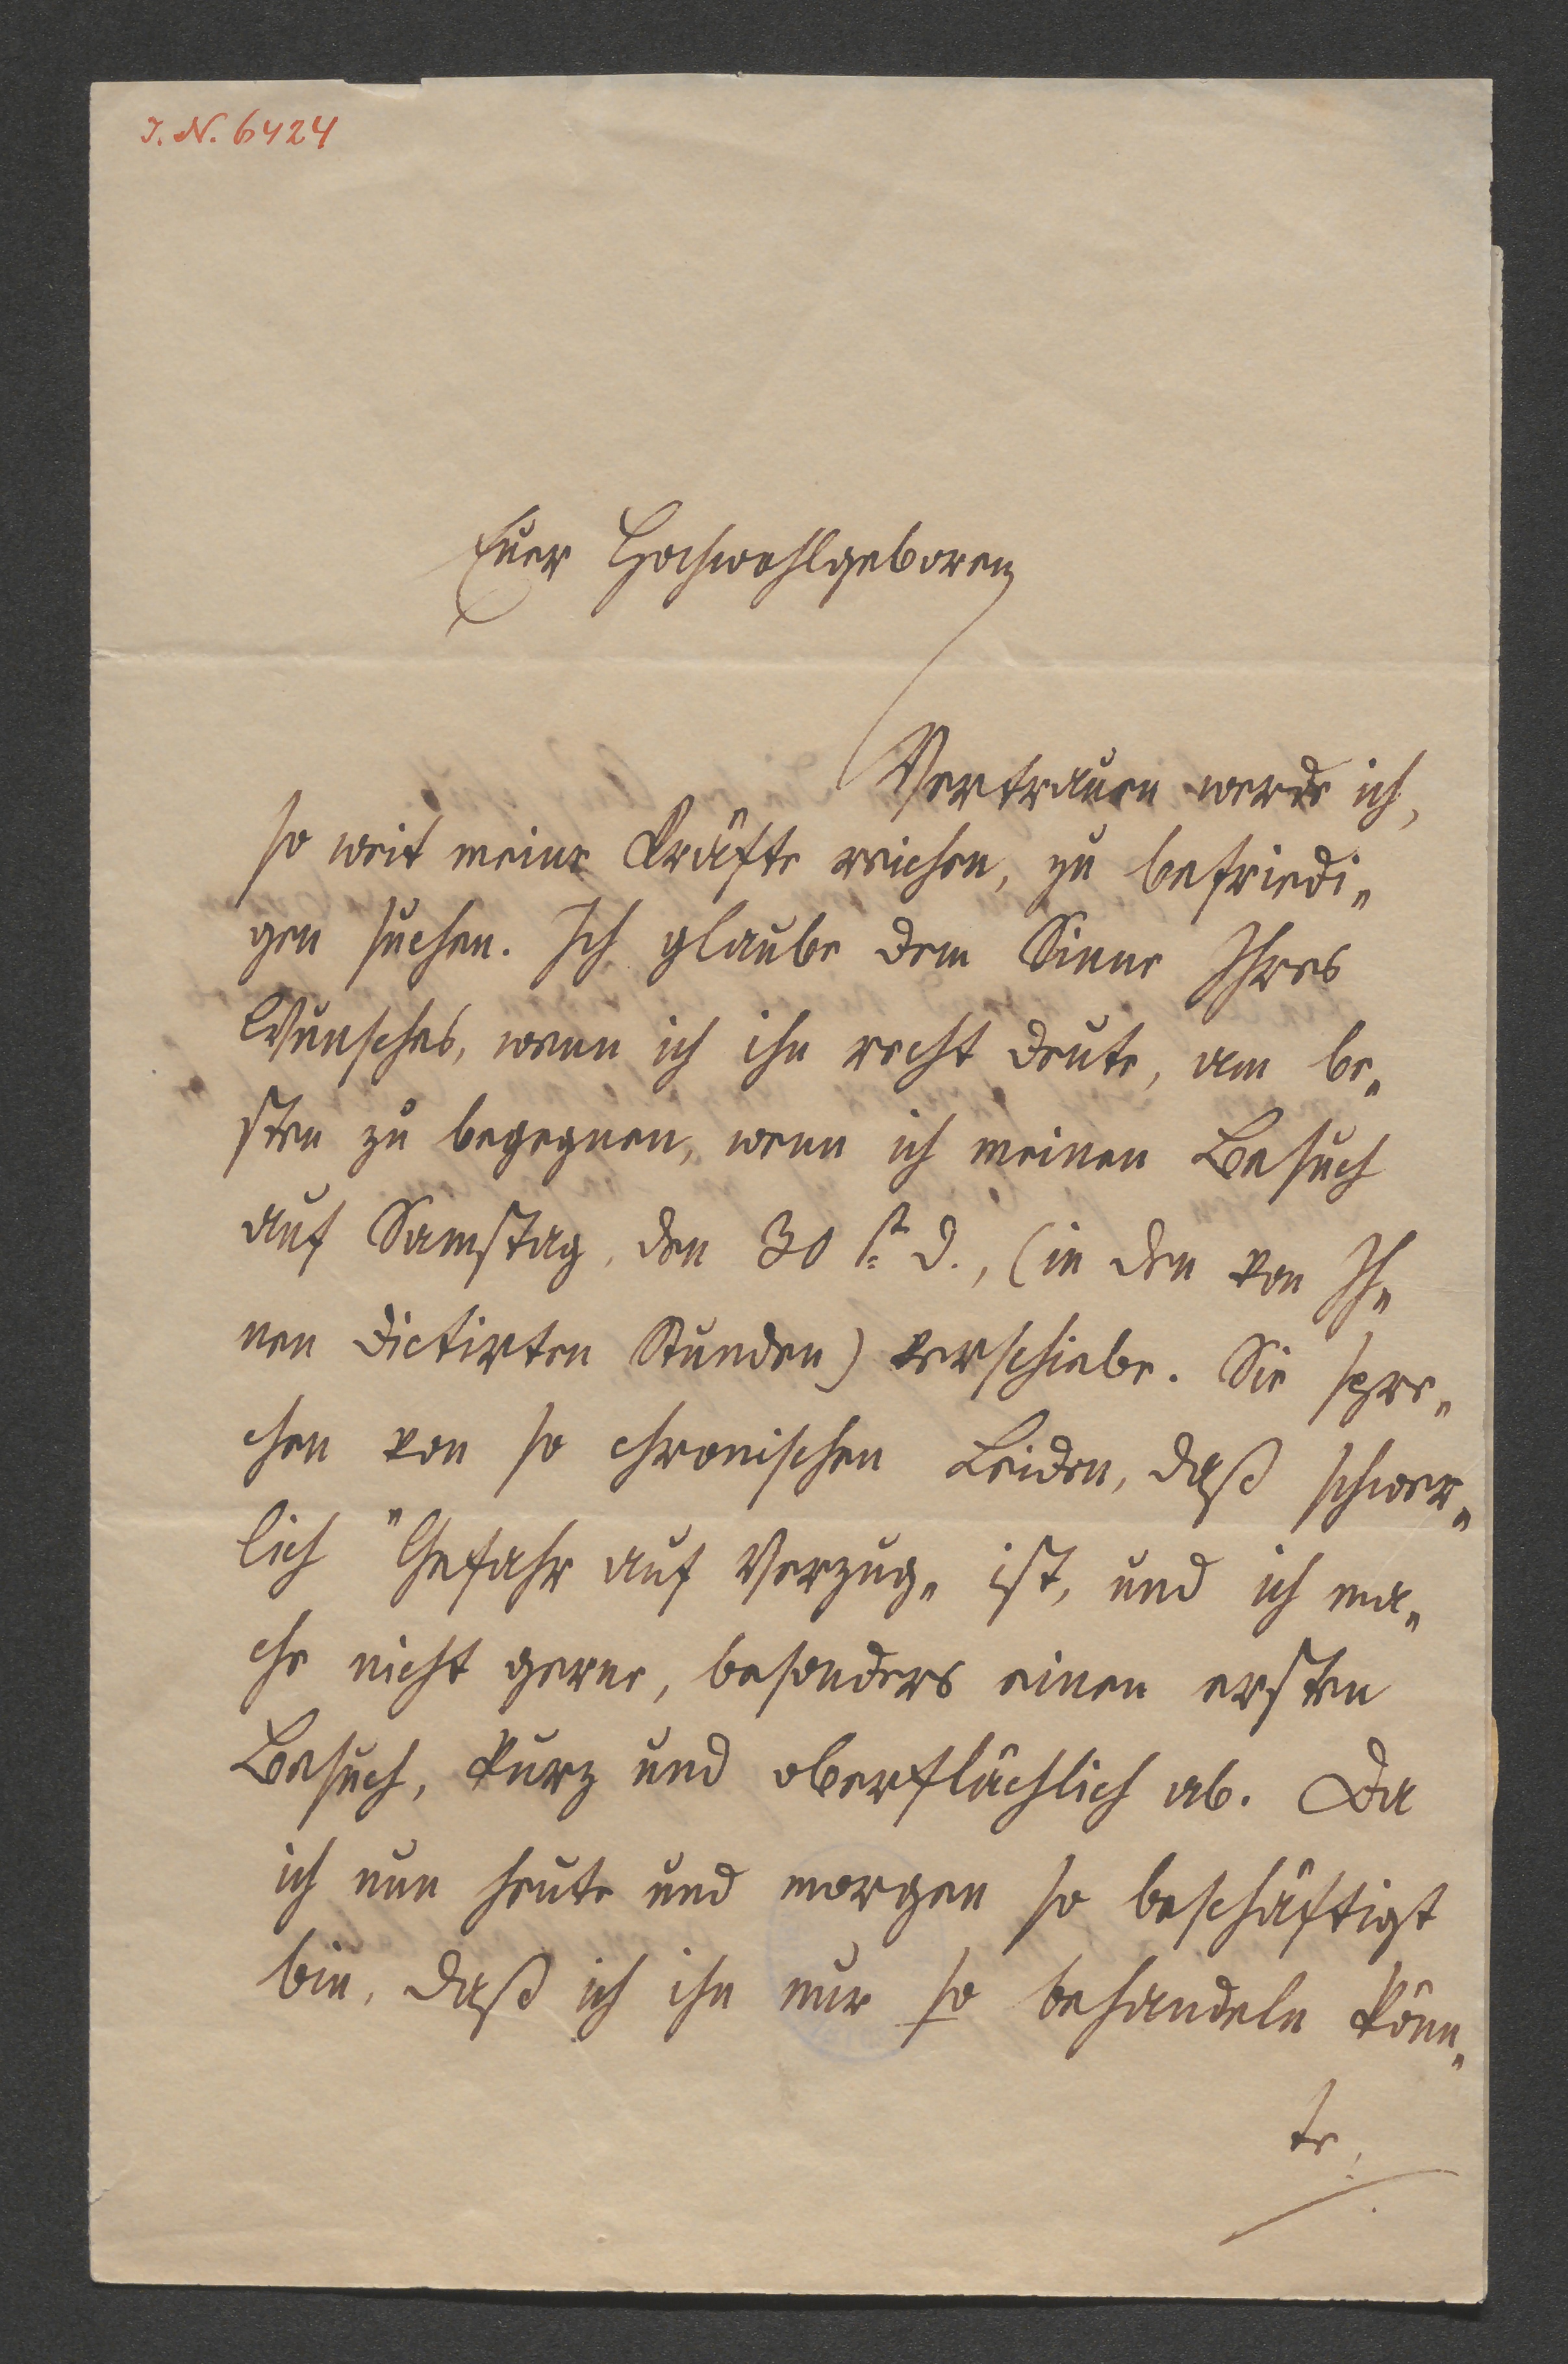 J. N. 6424
Euer Hochwohlgeboren
Vertrauen werde ich,
so weit meine Kräfte reichen, zu befriedi„
gen suchen. Ich glaube dem Sinne Ihres
Wunsches, wenn ich ihn recht deute, am be„
sten zu begegnen, wenn ich meinen Besuch
auf Samstag, den 30 st. d., (in den von Ih„
nen dictirten Stunden) verschiebe. Sie spre„
chen von so chronischen Leiden, daß schwer„
lich "Gefahr auf Verzug„ ist, und ich ma„
che nicht gerne, besonders einen ersten
Besuch, kurz und oberflächlich ab. Da
ich nun heute und morgen so beschäftigt
bin, daß ich ihn nur so behandeln könn„
te,